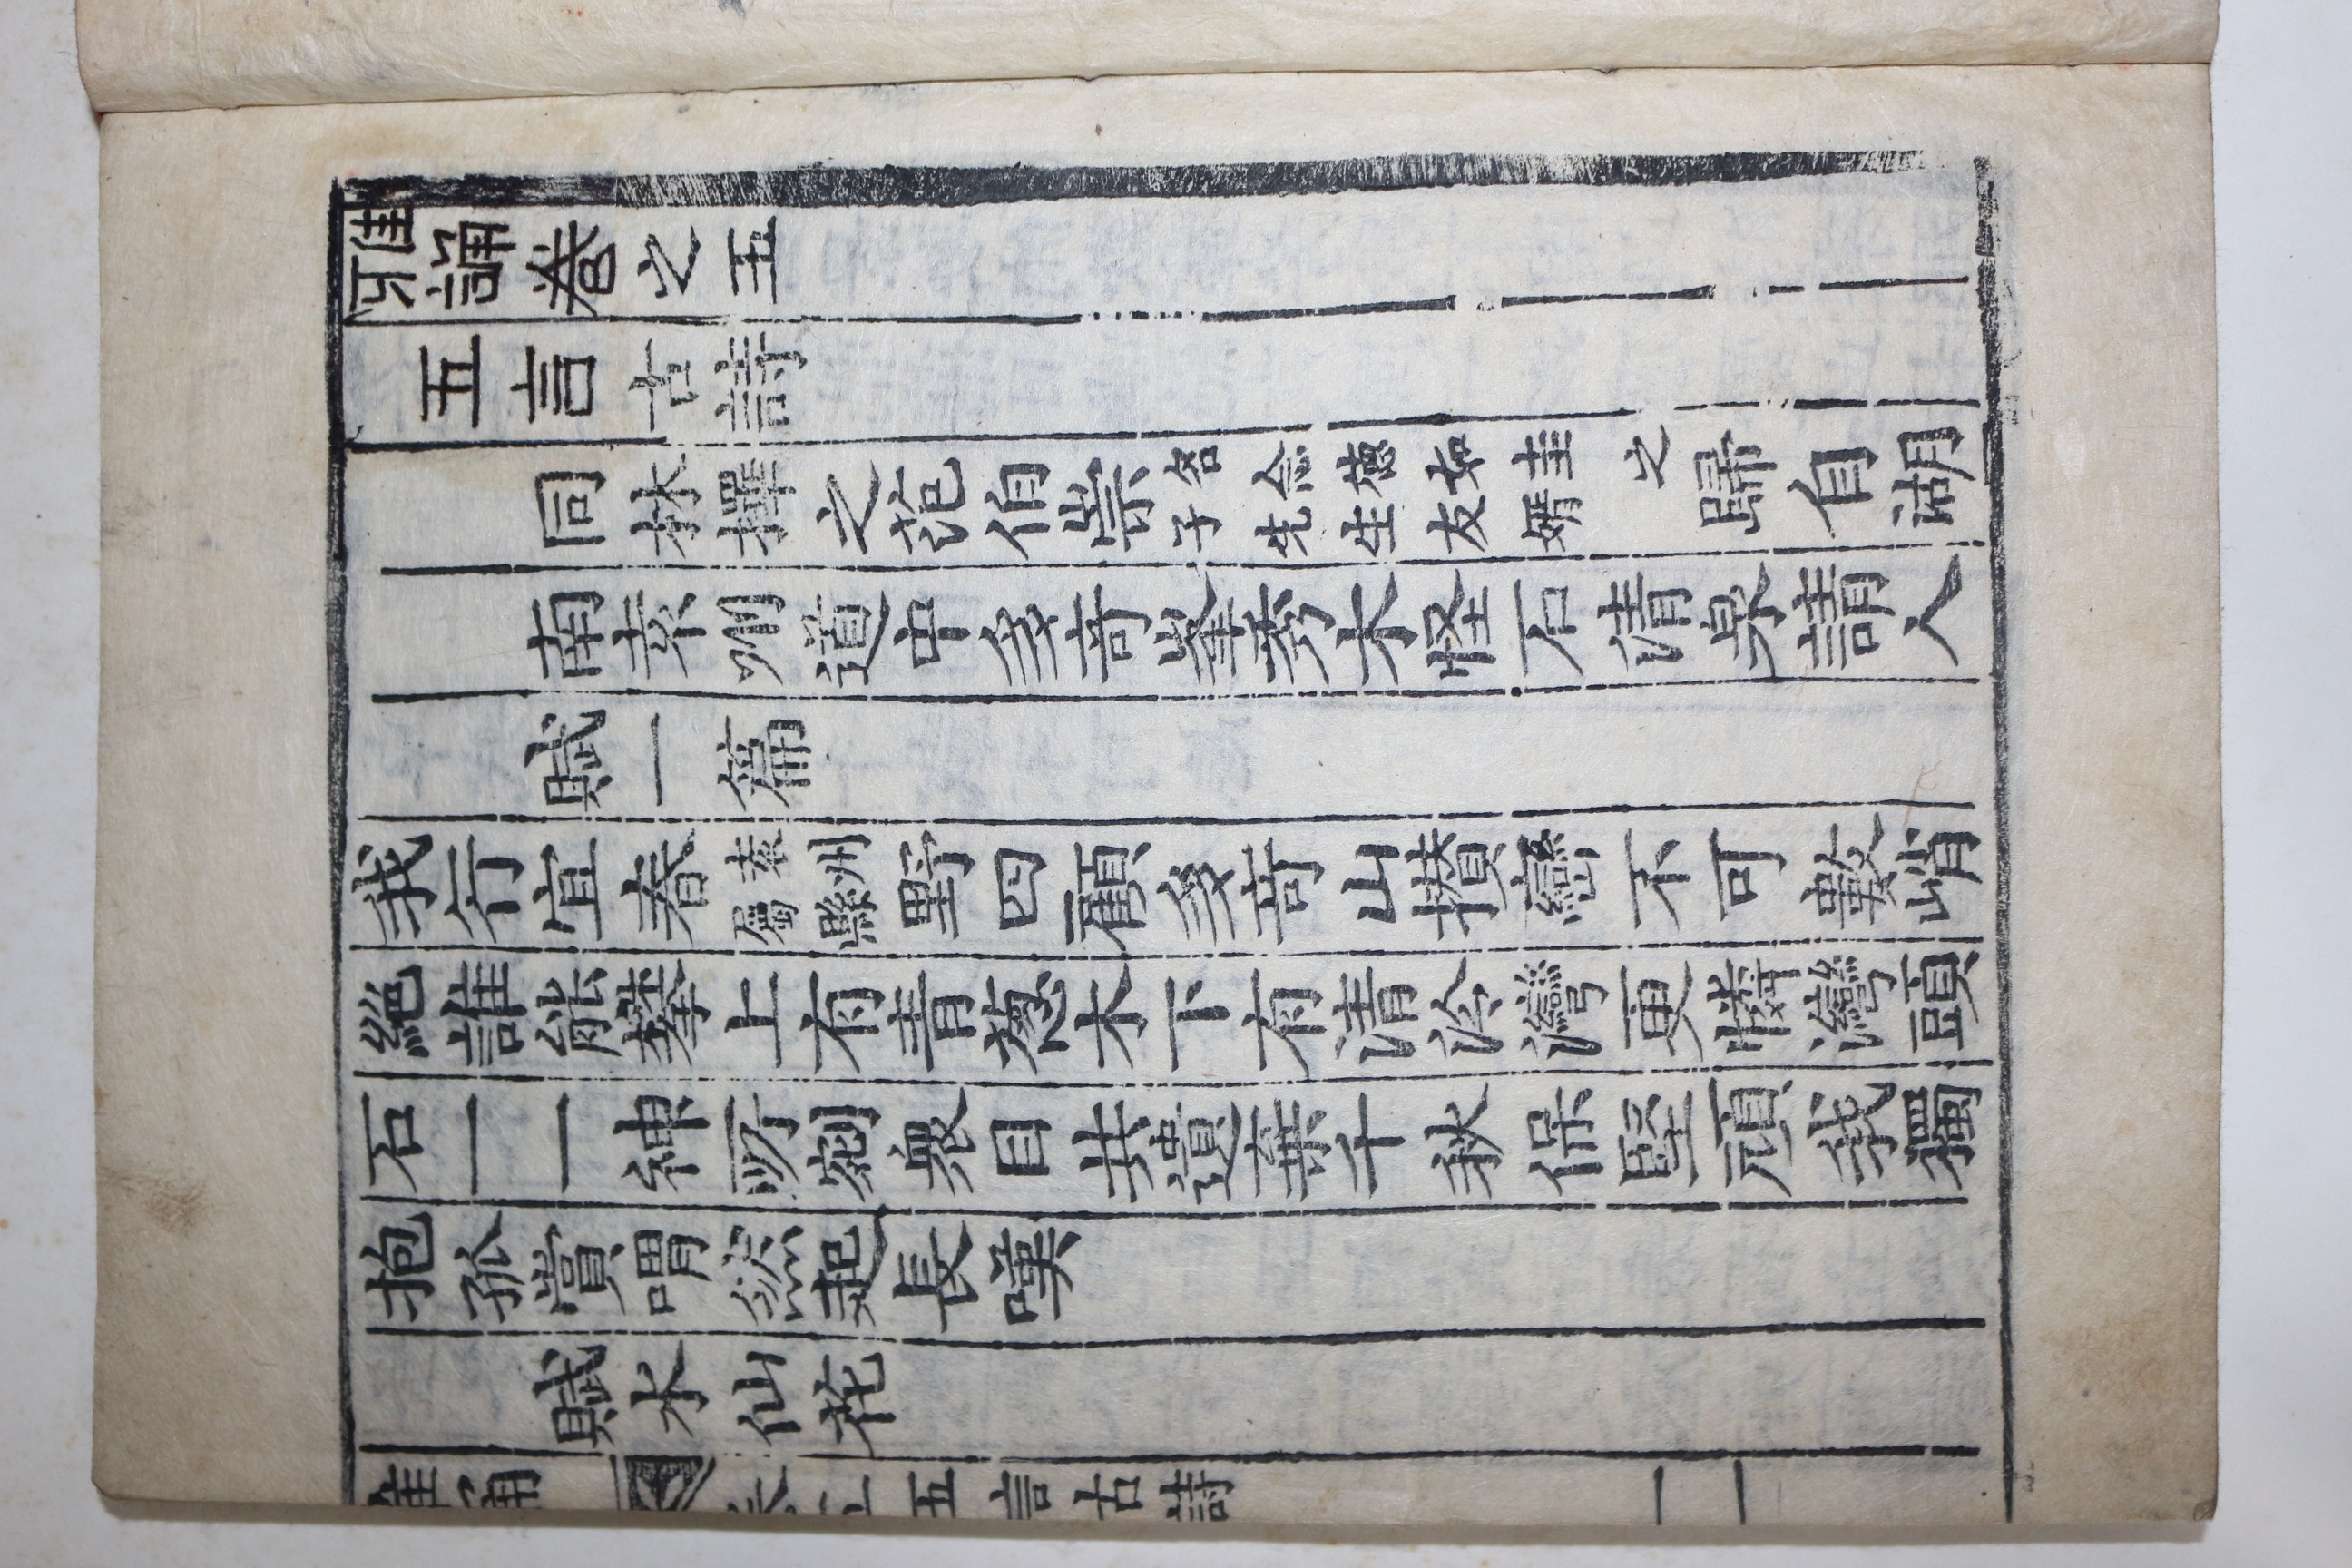 雅誦卷之五
五言古詩
同林擇之范伯崇名念德如圭之子先生友婿歸自湖
南袁州道中多奇峯秀木怪石清泉請人
賦一篇
我行宜春袁州屬縣野四顧多奇山攢巒不可數峭
絶誰能攀上有青葱木下有清泠灣更憐灣頭
石一一神所剜衆目共遺棄千秋保堅頑我獨
抱孤賞喟然起長嘆
賦水仙花
雅誦 卷五 五言古詩 一 一